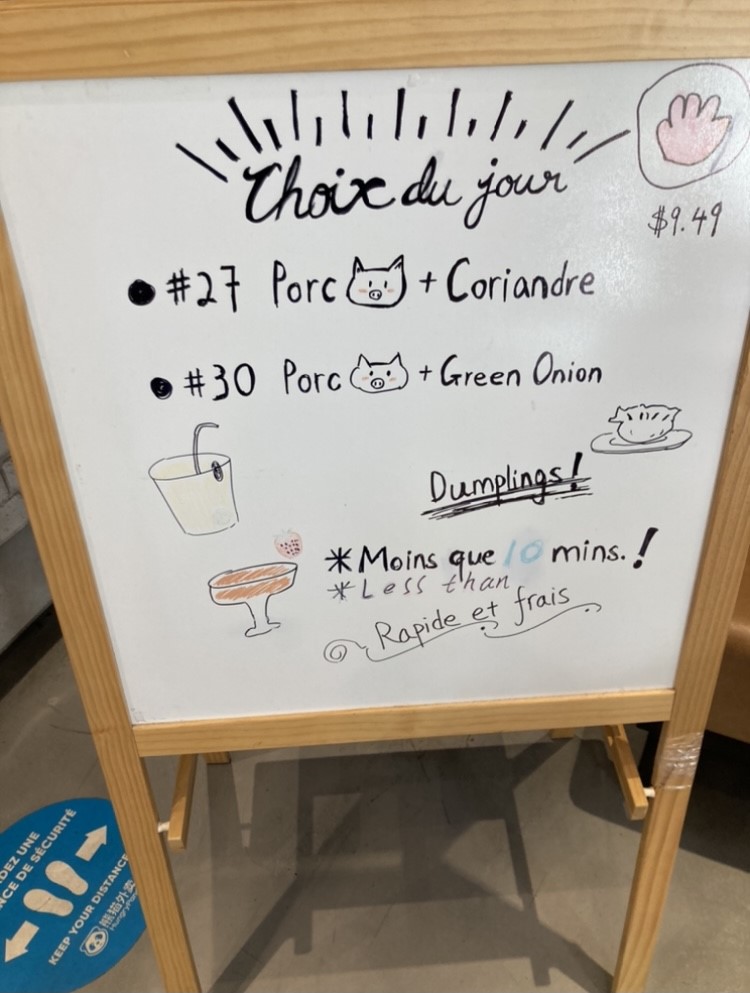 Choix du jour
$9.49
#27 Porc + Coriandre
#30 Porc + Green Onion
Dumplings!
*Moins que 10 mins.!
*Less than
Rapide et frais
DEZ UNE
NCE DE SÉCURITÉ
KEEP YOUR DISTANCE
熊猫外卖
HungryPanda